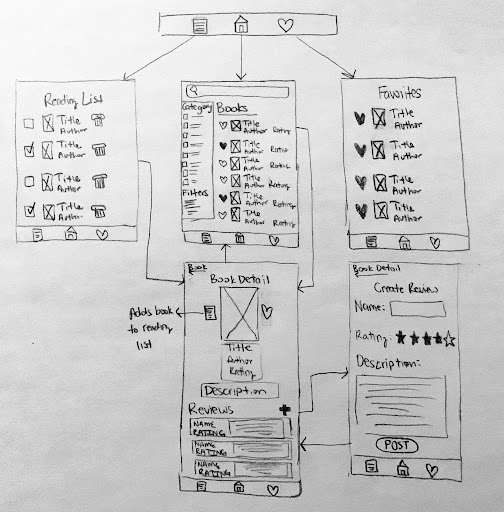 Reading List
Title
Author
Title
Author
Title
Author
Title
Author
Category
Filters
Books
Title
Author Rating
Title
Author Ratin
Title
Author Rating
Title
Author Rating
Title
Author Rating
Title
Author Rating
Favorites
Title
Author
Title
Author
Title
Author
Title
Author
Book
Book Detail
Adds book
to reading
list
Title
Author
Rating
Description
Reviews
NAME
RATING
NAME
RATING
NAME
RATING
Book Detail
Create Review
Name:
Rating:
Description:
POST